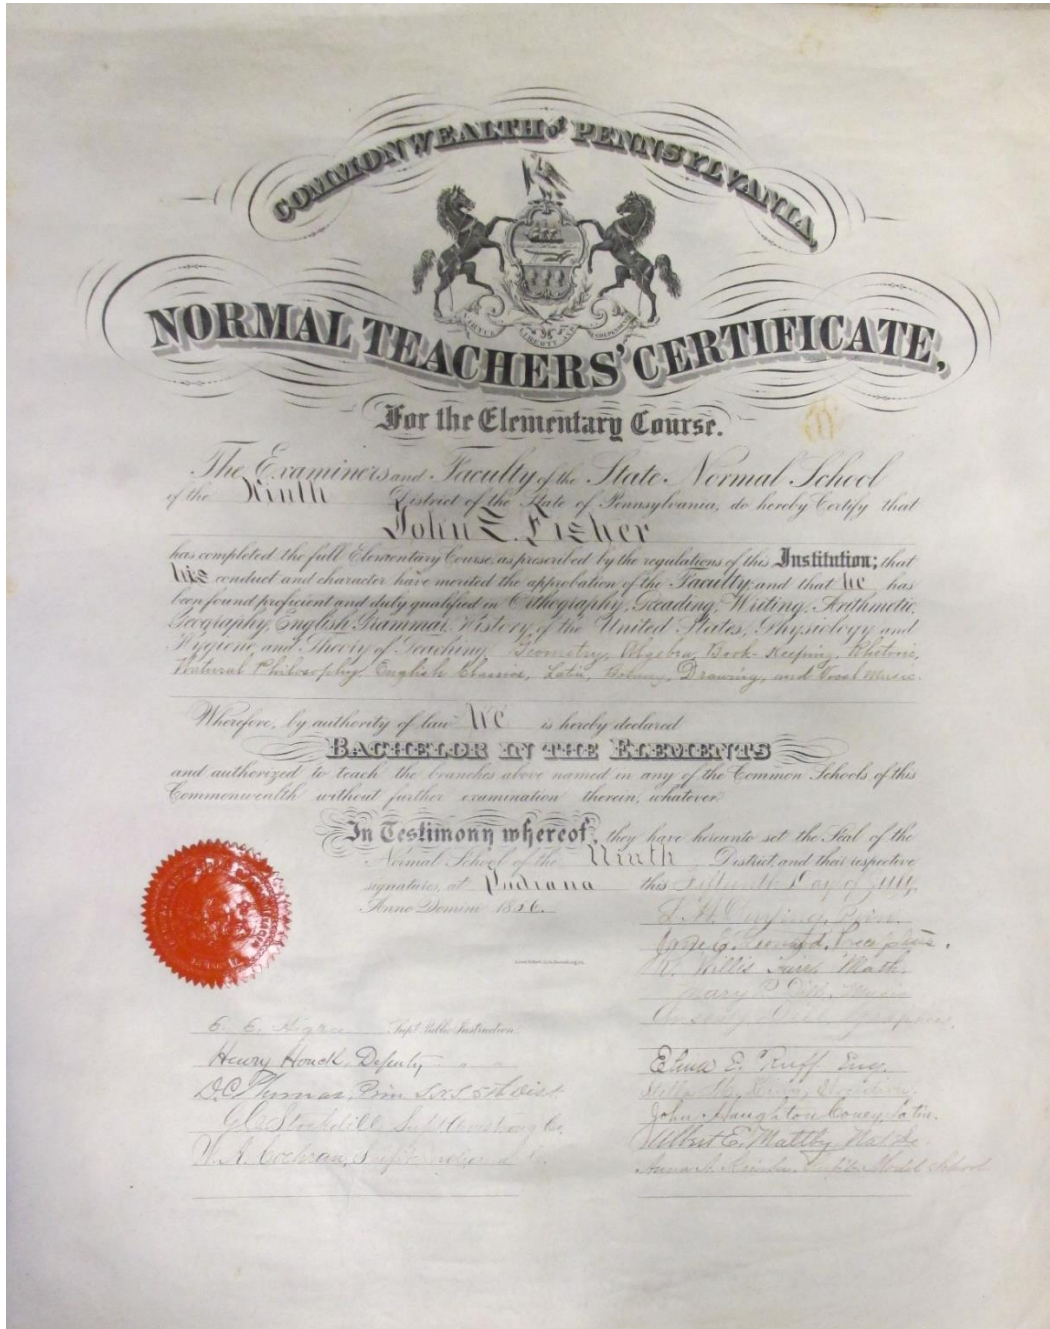 COMMONWEALTH of PENNSYLVANIA,
VIRTUE LIBERTY AND INDEPENDENCE
NORMAL TEACHERS' CERTIFICATE,
For the Elementary Course.
The Examiners and Faculty of the State Normal School
of the Ninth District of the State of Pennsylvania, do hereby Certify that
John E. Fisher
has completed the full Elementary Course, as prescribed by the regulations of this Institution; that
his conduct and character have merited the approbation of the Faculty, and that he has
been found proficient and duly qualified in Orthography, Reading, Writing, Arithmetic,
Geography, English Grammar, History of the United States, Physiology and
Hygiene, and Theory of Teaching, Geometry, Algebra, Book-Keeping, Rhetoric,
Natural Philosophy, English Classics, Latin, Botany, Drawing, and Vocal Music.
Wherefore, by authority of law he is hereby declared
BACHELOR IN THE ELEMENTS
and authorized to teach the branches above named in any of the Common Schools of this
Commonwealth without further examination therein, whatever.
In Testimony whereof, they have hereunto set the Seal of the
Normal School of the Ninth District, and their respective
signatures, at Indiana this Fifteenth Day of July,
Anno Domini 18
Prin.
Jane E. Leonard, Preceptress.
Willis Math.
Mary Music
E. E. Supt. Public Instruction
Henry Houck, Deputy " "
D.C. Prin S.N.S. 5th Dist.
Stockdill, Supt Armstrong Co.
W. A. Cochran, Supt
Elma E. Ruff Eng.
John Haughton Coney, Latin.
Wilbert E. Maltby
Anna Model School